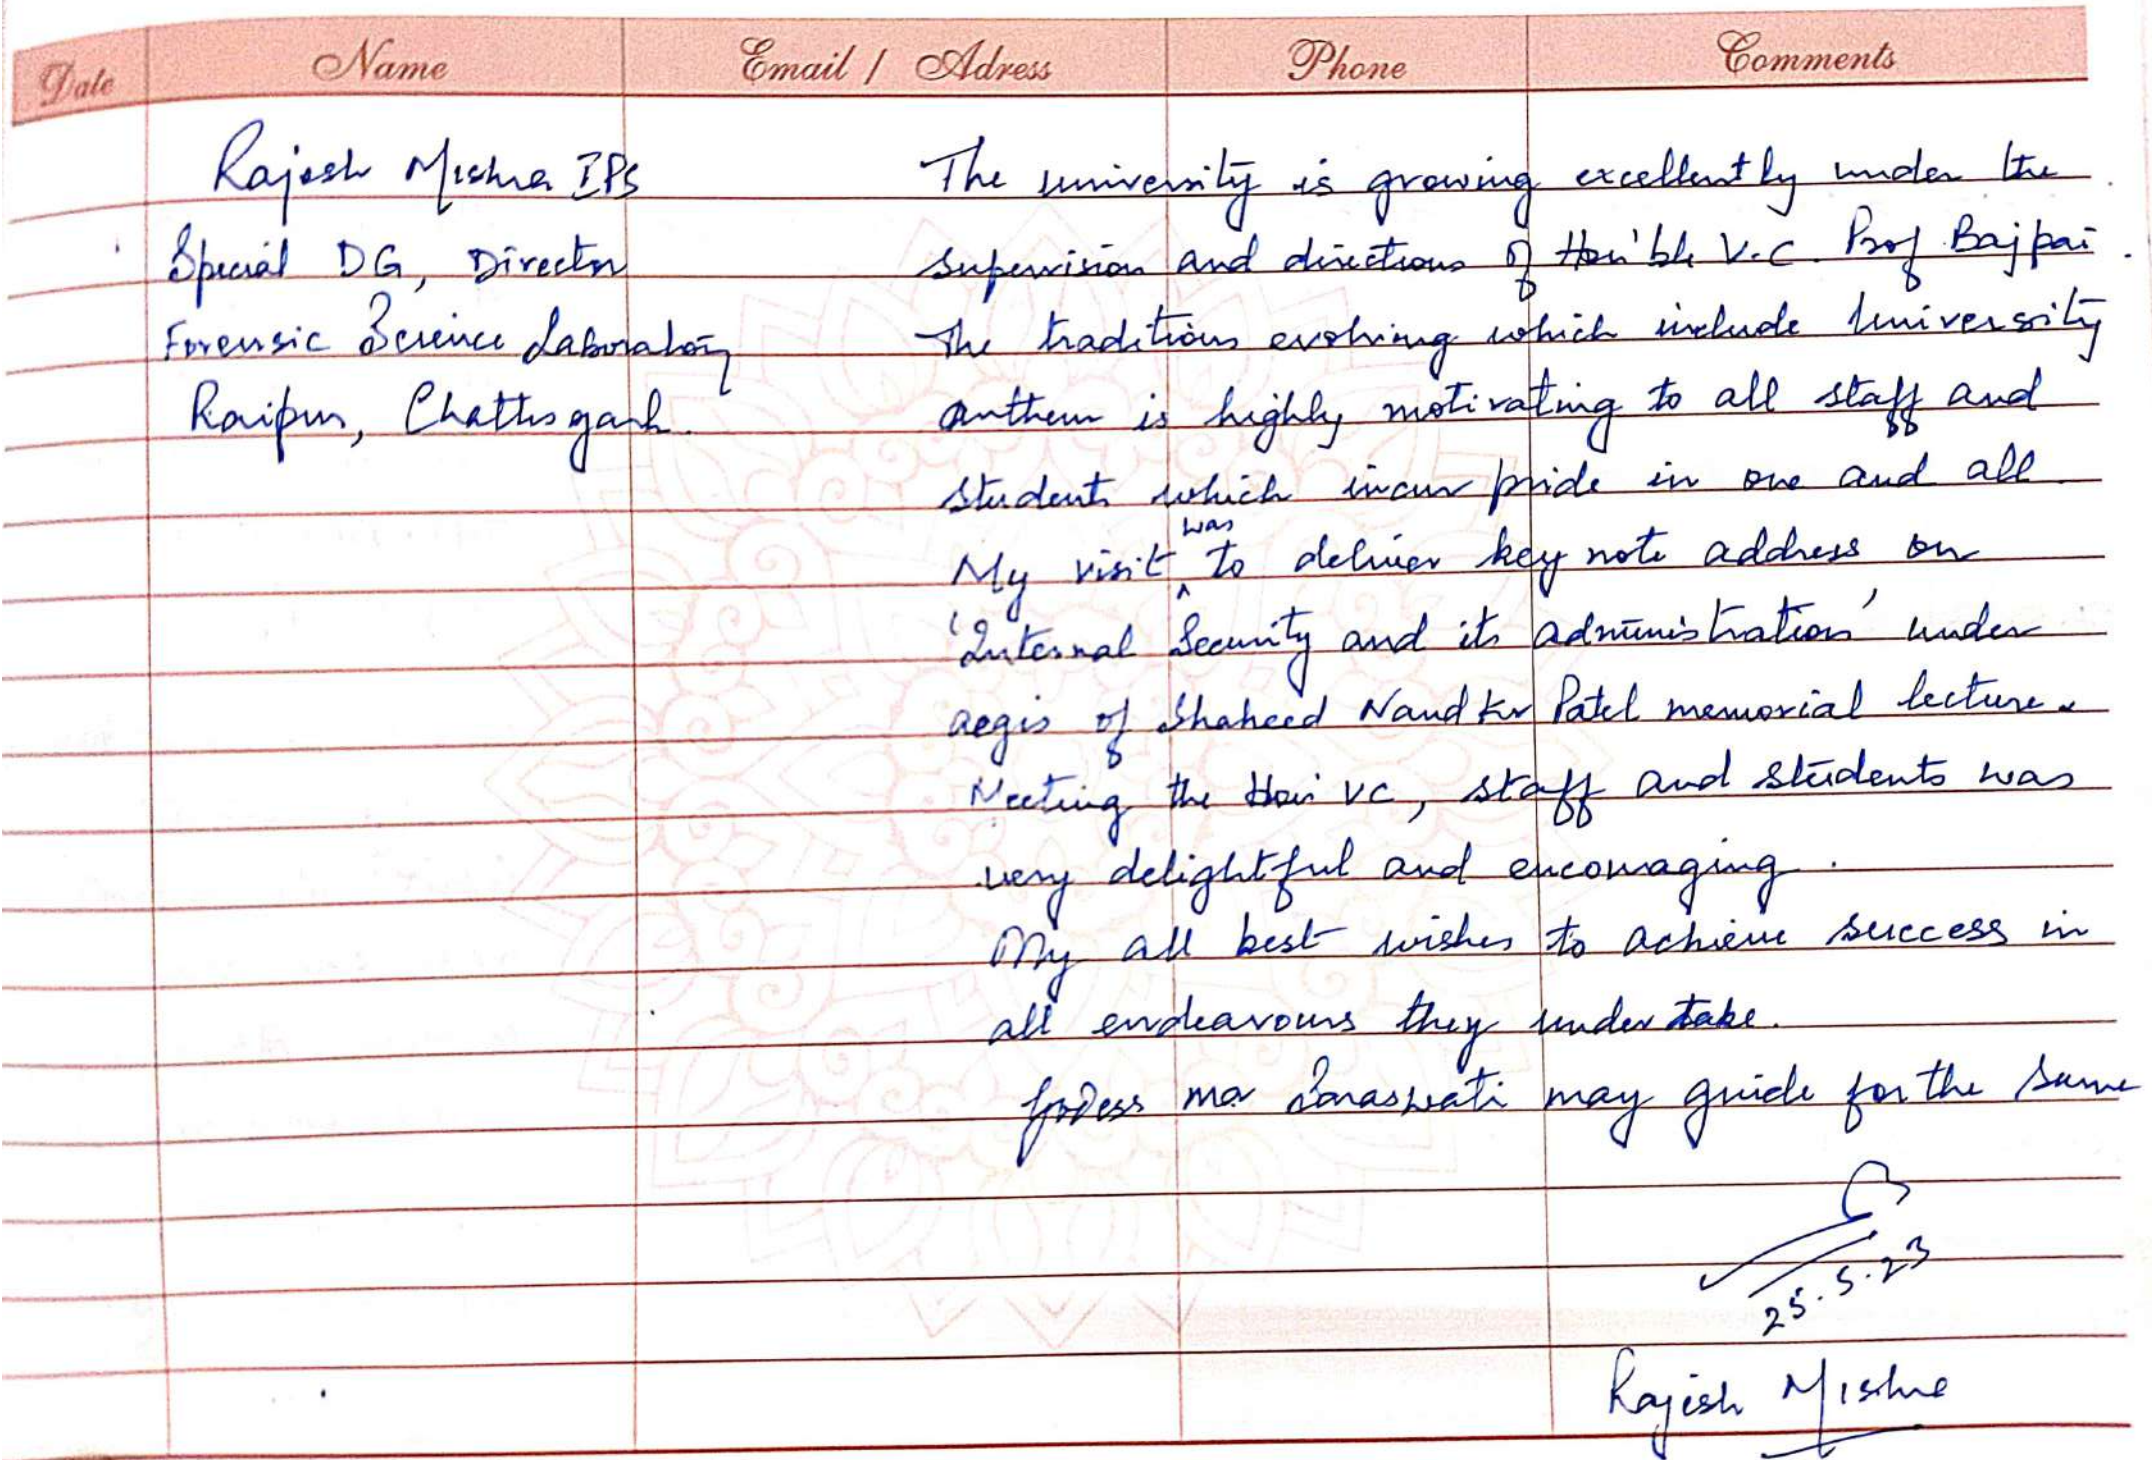 Date Name Email / Adress Phone Comments
Rajesh Mishra IPS
Special DG, Director
Forensic Science Laboratory
Raipur, Chattisgarh.
The university is growing excellently under the
supervision and directions of Hon'ble V.C. Prof Bajpai.
The traditions evolving which include University
anthem is highly motivating to all staff and
students which incur pride in one and all
My visit was to deliver key note address on
'Internal Security and its administration' under
aegis of Shaheed Nand Kr Patel memorial lecture.
Meeting the Hon VC, staff and students was
very delightful and encouraging.
My all best wishes to achieve success in
all endeavours they undertake.
Godess ma Saraswati may guide for the same
25.5.23
Rajesh Mishra